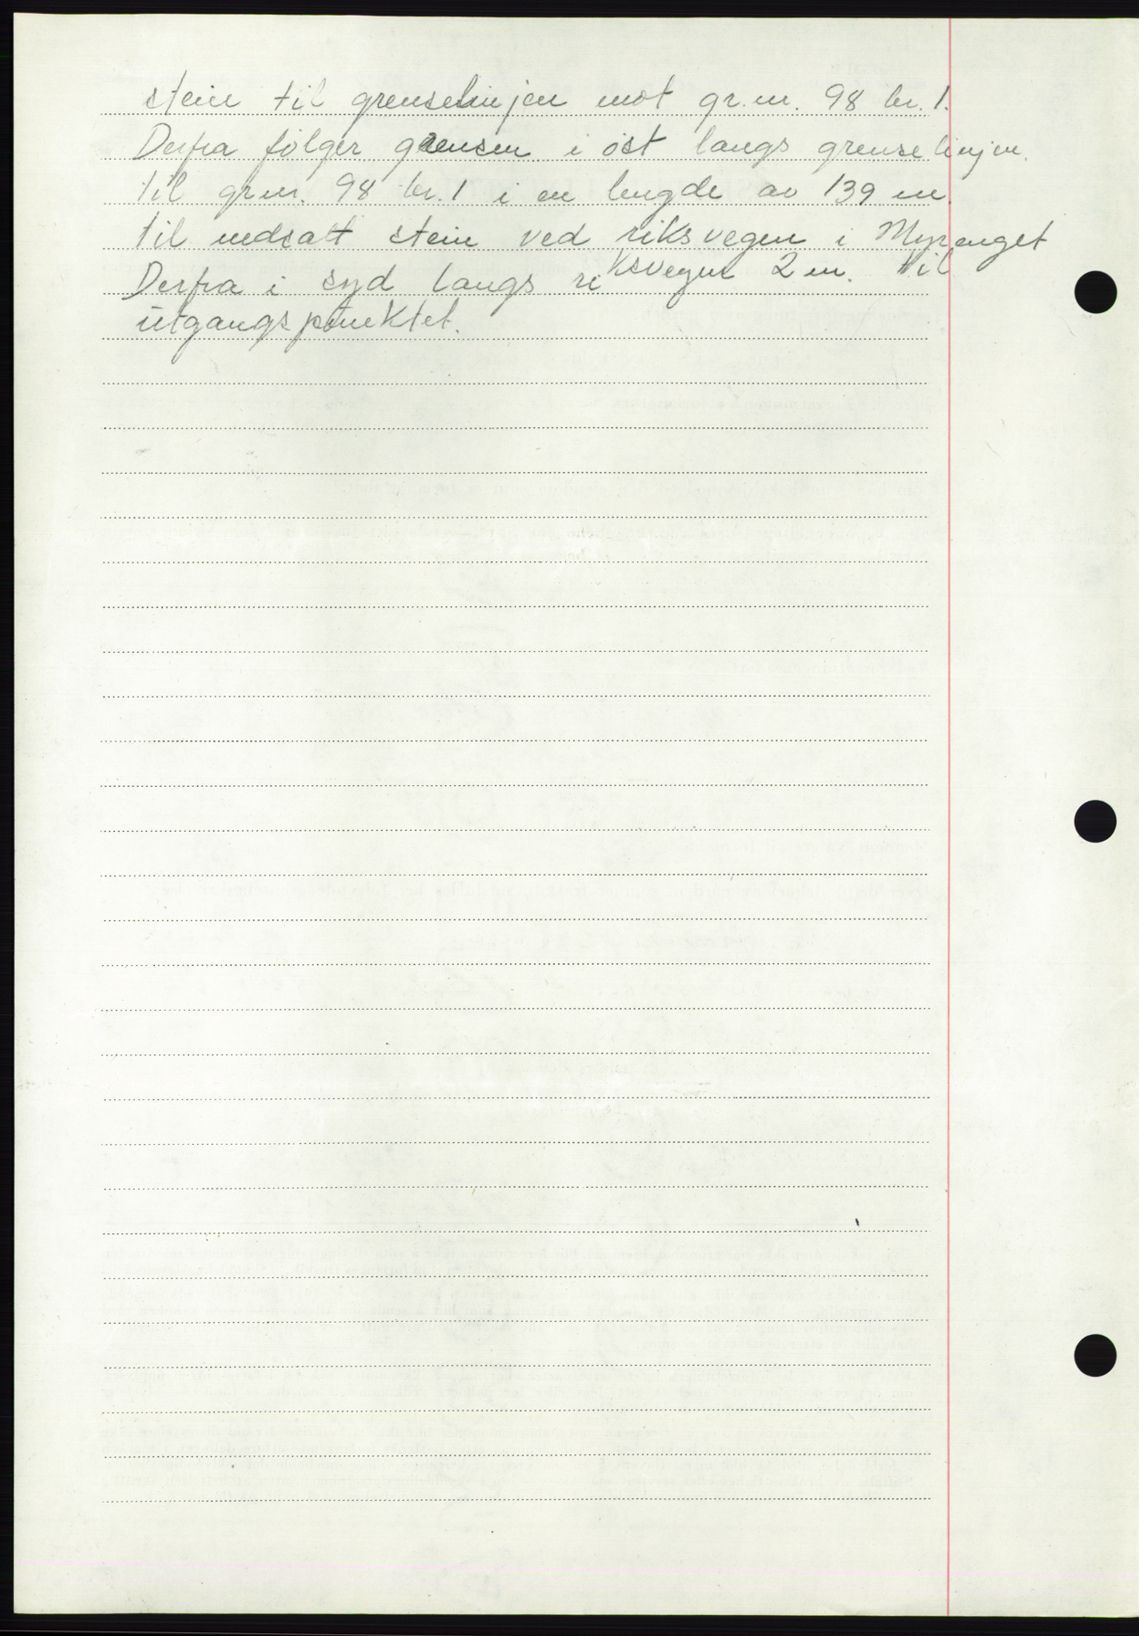 stein til grenselinjen mot gr.nr. 98 br. 1.
Derfra følger grensen i øst langs grenselinjen.
til gr.nr. 98 br. 1 i en lengde av 139 m.
til nedsatt stein ved riksvegen i Myrenget
Derfra i syd langs riksvegen 2 m. til
utgangspunktet.